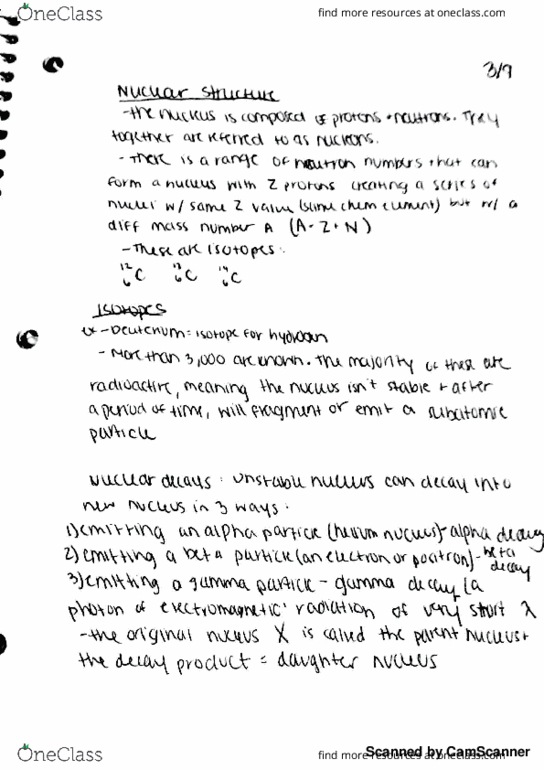 OneClass
find more resources at oneclass.com
3/9
Nuclear Structure
-the nucleus is composed of protons + neutrons. They
together are referred to as nucleons.
- There is a range of neutron numbers that can
form a nucleus with Z protons creating a series of
nuclei w/ same Z value (same chem element) but w/ a
diff mass number A (A=Z+N)
- These are isotopes:
¹²₆C ¹³₆C ¹⁴₆C
Isotopes
ex - Deuterium = isotope for hydrogen
- More than 3,000 are known. The majority of these are
radioactive, meaning the nucleus isn't stable + after
a period of time, will fragment or emit a subatomic
particle
Nuclear decays: unstable nucleus can decay into
new nucleus in 3 ways:
1) emitting an alpha particle (helium nucleus) - alpha decay
2) emitting a beta particle (an electron or positron) - beta
decay
3) emitting a gamma particle - gamma decay (a
photon of electromagnetic radiation of very short λ
- the original nucleus X is called the parent nucleus +
the decay product = daughter nucleus
OneClass
find more resources at oneclass.com
Scanned by CamScanner